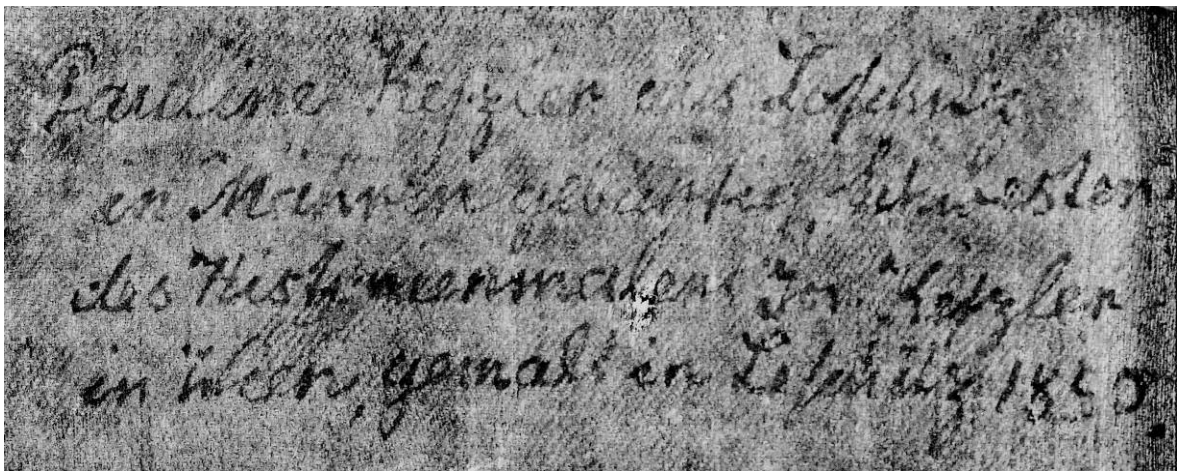 Pauline Keßler aus Loschitz
in Mähren gebürtig, Schwester
des Historienmalers Jos. Keßler
in Wien, gemalt in Loschitz 1850.